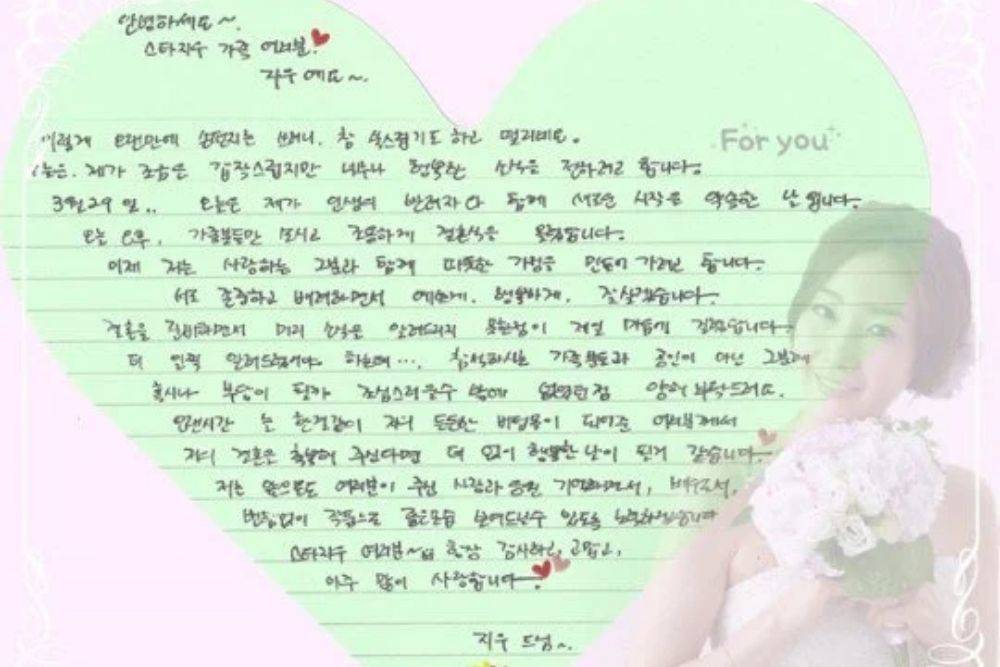 안녕하세요~.
스타지우 가족 여러분.
지우예요~.
이렇게 오랜만에 손편지를 쓰려니, 참 쑥스럽기도 하고 떨리네요.
오늘은, 제가 조금은 갑작스럽지만 너무나 행복한 소식을 전하려고 합니다.
3월 29일.. 오늘은 제가 인생의 반려자와 함께 새로운 시작을 약속한 날입니다.
오늘 오후, 가족분들만 모시고 조용하게 결혼식을 올렸습니다.
이제 저는 사랑하는 그분과 함께 따뜻한 가정을 만들어 가려 합니다.
서로 존중하고 배려하면서 예쁘게, 행복하게, 잘살겠습니다.
결혼을 준비하면서 미리 소식을 알려드리지 못한점이 제일 마음에 걸렸답니다.
더 일찍 알려드렸어야 하는데…, 참석하시는 가족분들과 공인이 아닌 그분께
혹시나 부담이 될까 조심스러울수 밖에 없었던점 양해 부탁드려요.
오랜시간 늘 한결같이 저의 든든한 버팀목이 되어준 여러분께서
저의 결혼을 축복해 주신다면 더 없이 행복한 날이 될거 같습니다.
저는 앞으로도 여러분이 주신 사랑과 응원 기억하면서, 배우로서,
변함없이 작품으로 좋은모습 보여드릴수 있도록 노력하겠습니다
스타지우 여러분~ 항상 감사하고, 고맙고,
아주 많이 사랑합니다
지우 드림~.
For you